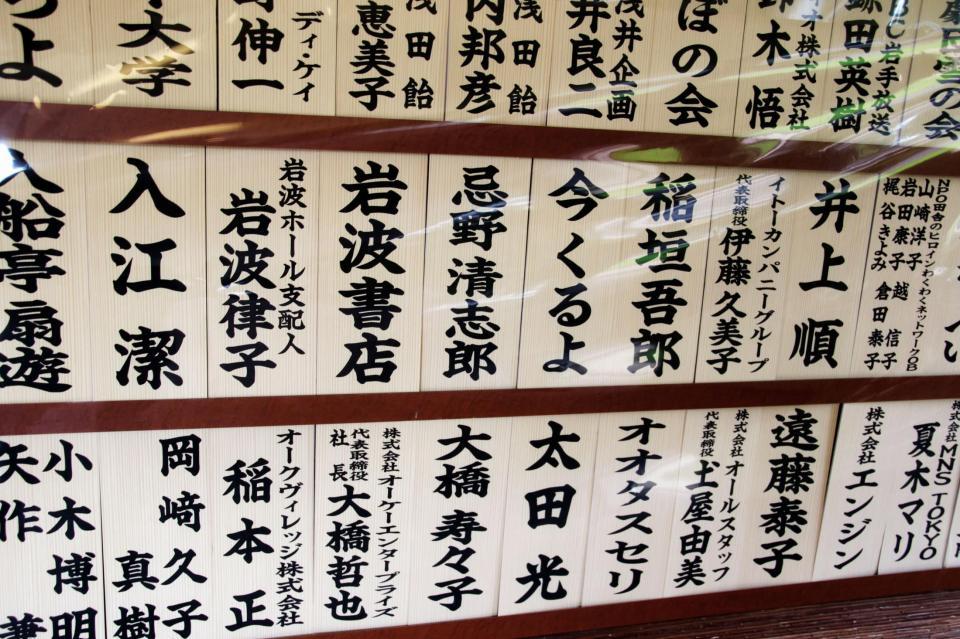 の会
岩手放送
田英樹
株式会社
木 悟
ぼの会
浅井企画
井良二
浅田飴
内邦彦
浅田飴
恵美子
ディ・ケイ
伸一
大学
よ
い
NPO田舎のヒロインわくわくネットワークOB
山崎洋子
岩田康子 越 信子
梶谷きよみ 倉田 泰子
井上 順
イトーカンパニーグループ
代表取締役
伊藤久美子
稲垣吾郎
今くるよ
忌野清志郎
岩波書店
岩波ホール支配人
岩波律子
入江 潔
入船亭扇遊
株式会社MNS TOKYO
夏木マリ
株式会社
エンジン
遠藤泰子
株式会社 オールスタッフ
代表取締役
土屋由美
オオタスセリ
太田 光
大橋 寿々子
株式会社 オーケーエンタープライズ
代表取締役
社長 大橋哲也
オークヴィレッジ株式会社
稲本 正
岡﨑 久子
真樹
小木博明
矢作 兼